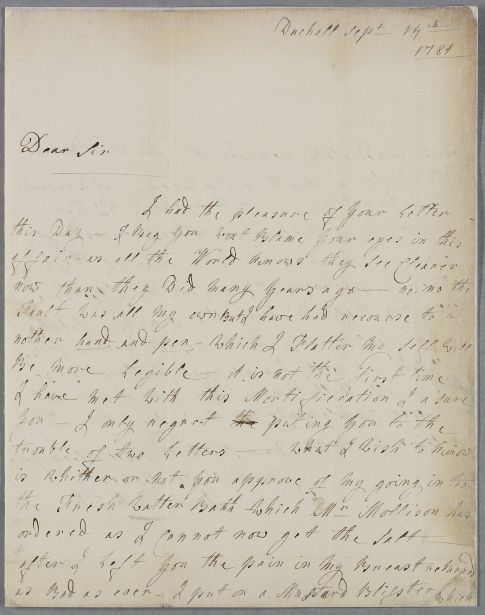 Duchall Sept 14th
1781
Dear Sir
I had the pleasure of Your Letter
this Day — I Beg You wont Blame Your eyes in this
affair as all the World knows they See Clearer
now than they Did many Years ago — no: no the
Fault was all my own But I have had recourse to a
nother hand and pen – which I Flatter my self will
Be more Legible — it is not the first time
I have met with this Mortification I asure
You — I only regret puting You to the
trouble of two Letters — what I Wish to know
is whether or not You approve of my going into
the Fresh Watter Bath which Dr Mollison has
ordered as I cannot now get the Salt —
after I Left You the pain in my Breast returned
as Bad as ever – I put on a Mustard Blister which